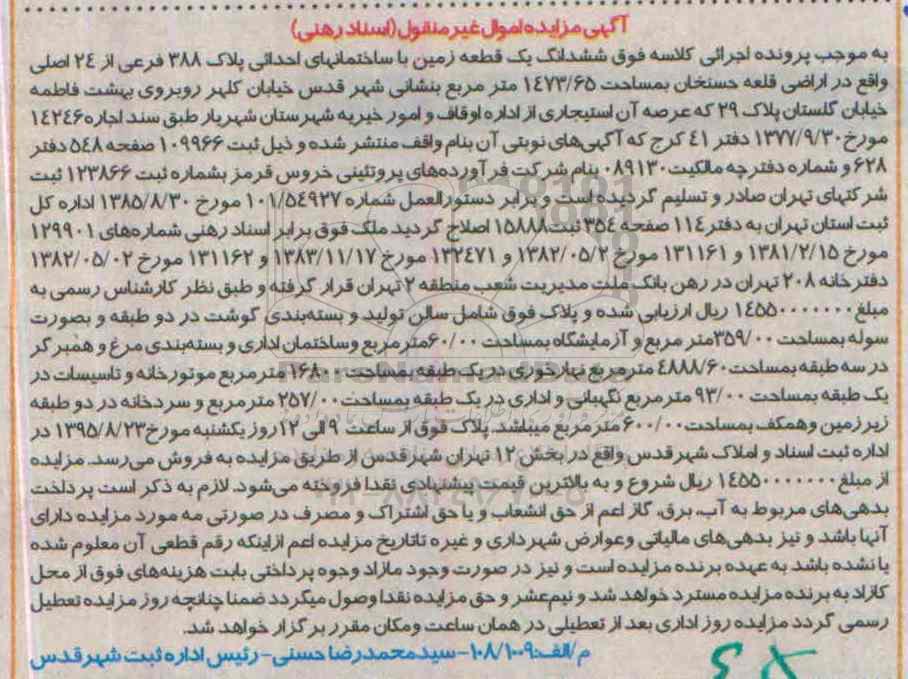 آگهی مزایده اموال غیر منقول (اسناد رهنی)
به موجب پرونده اجرائی کلاسه فوق ششدانگ یک قطعه زمین با ساختمانهای احداثی پلاک ۳۸۸ فرعی از ۲۴ اصلی
واقع در اراضی قلعه حسنخان بمساحت ۱۴۷۳/۶۵ متر مربع بنشانی شهر قدس خیابان کلهر روبروی بهشت فاطمه
خیابان گلستان پلاک ۲۹ که عرصه آن استیجاری از اداره اوقاف و امور خیریه شهرستان شهریار طبق سند اجاره ۱۴۲۴۶
مورخ ۱۳۷۷/۹/۳۰ دفتر ۴۱ کرج که آگهی‌های نوبتی آن بنام واقف منتشر شده و ذیل ثبت ۱۰۹۹۶۶ صفحه ۵۴۸ دفتر
۶۲۸ و شماره دفترچه مالکیت ۰۸۹۱۳۰ بنام شرکت فرآورده‌های پروتئینی خروس قرمز بشماره ثبت ۱۲۳۸۶۶ ثبت
شرکتهای تهران صادر و تسلیم گردیده است و برابر دستورالعمل شماره ۱۰۱/۵۴۹۲۷ مورخ ۱۳۸۵/۸/۳۰ اداره کل
ثبت استان تهران به دفتر ۱۱۴ صفحه ۳۵۴ ثبت ۱۵۸۸۸ اصلاح گردید ملک فوق برابر اسناد رهنی شماره‌های ۱۲۹۹۰۱
مورخ ۱۳۸۱/۲/۱۵ و ۱۳۱۱۶۱ مورخ ۱۳۸۲/۰۵/۲ و ۱۳۲۴۷۱ مورخ ۱۳۸۳/۱۱/۱۷ و ۱۳۱۱۶۲ مورخ ۱۳۸۲/۰۵/۰۲
دفترخانه ۲۰۸ تهران در رهن بانک ملت مدیریت شعب منطقه ۲ تهران قرار گرفته و طبق نظر کارشناس رسمی به
مبلغ ۱۴۵۵۰۰۰۰۰۰۰ ریال ارزیابی شده و پلاک فوق شامل سالن تولید و بسته‌بندی گوشت در دو طبقه و بصورت
سوله بمساحت ۳۵۹/۰۰ متر مربع و آزمایشگاه بمساحت ۶۰/۰۰ متر مربع وساختمان اداری و بسته‌بندی مرغ و همبرگر
در سه طبقه بمساحت ۴۸۸۸/۶۰ مترمربع نهارخوری در یک طبقه بمساحت ۱۶۸۰۰ مترمربع موتورخانه و تاسیسات در
یک طبقه بمساحت ۹۳/۰۰ متر مربع نگهبانی و اداری در یک طبقه بمساحت ۲۵۷/۰۰ متر مربع و سردخانه در دو طبقه
زیرزمین وهمکف بمساحت ۶۰۰/۰۰ متر مربع میباشد. پلاک فوق از ساعت ۹ الی ۱۲ روز یکشنبه مورخ ۱۳۹۵/۸/۲۳ در
اداره ثبت اسناد و املاک شهر قدس واقع در بخش ۱۲ تهران شهرقدس از طریق مزایده به فروش می‌رسد. مزایده
از مبلغ ۱۴۵۵۰۰۰۰۰۰۰ ریال شروع و به بالاترین قیمت پیشنهادی نقدا فروخته می‌شود. لازم به ذکر است پرداخت
بدهی‌های مربوط به آب، برق، گاز اعم از حق انشعاب و یا حق اشتراک و مصرف در صورتی مه مورد مزایده دارای
آنها باشد و نیز بدهی‌های مالیاتی وعوارض شهرداری و غیره تاتاریخ مزایده اعم ازاینکه رقم قطعی آن معلوم شده
یا نشده باشد به عهده برنده مزایده است و نیز در صورت وجود مازاد وجوه پرداختی بابت هزینه‌های فوق از محل
کازاد به برنده مزایده مسترد خواهد شد و نیم‌عشر و حق مزایده نقدا وصول میگردد ضمنا چنانچه روز مزایده تعطیل
رسمی گردد مزایده روز اداری بعد از تعطیلی در همان ساعت ومکان مقرر برگزار خواهد شد.
م/الف:۱۰۸/۱۰۰۹-سیدمحمدرضاحسنی-رئیس اداره ثبت شهرقدس